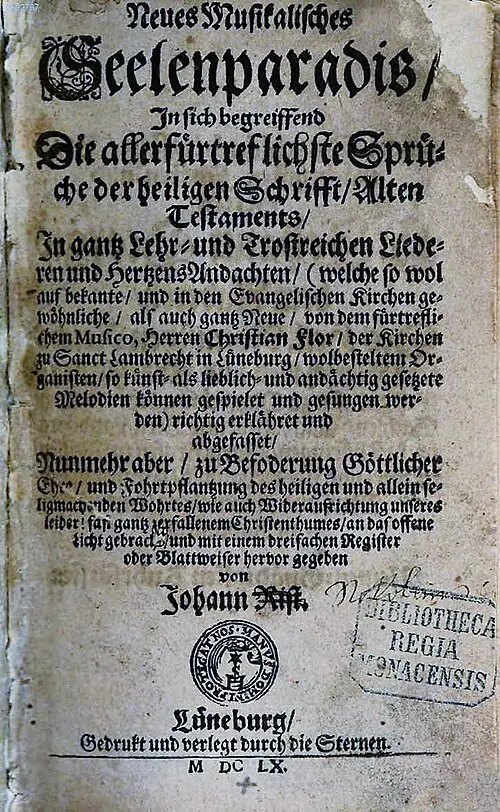 Neues Musikalisches
Seelenparadis/
In sich begreiffend
Die allerfürtreflichste Sprü-
che der heiligen Schrifft/ Alten
Testaments/
In gantz Lehr- und Trostreichen Liede-
ren und HertzensAndachten/ (welche so wol
auf bekante/ und in den Evangelischen Kirchen ge-
wöhnliche/ als auch gantz Neue/ von dem fürtrefli-
chem Musico, Herren Christian Flor/ der Kirchen
zu Sanct Lambrecht in Lüneburg/ wolbesteltem Or-
ganisten/ so künst- als lieblich- und andächtig gesetzete
Melodien können gespielet und gesungen wer-
den) richtig erklähret und
abgefasset/
Nunmehr aber/ zu Befoderung Göttlicher
Ehre/ und Fohrtpflantzung des heiligen und allein se-
ligmachenden Wohrtes/ wie auch Wideraufrichtung unseres
leider! fast gantz zerfallenem Christenthumes/ an das offene
Licht gebracht/ und mit einem dreifachen Register
oder Blattweiser hervor gegeben
von
Johann Rist.
BIBLIOTHECA
REGIA
MONACENSIS
PROTEGAT NOS MANUS DOMINI
Lüneburg/
Gedrukt und verlegt durch die Sternen.
M DC LX.